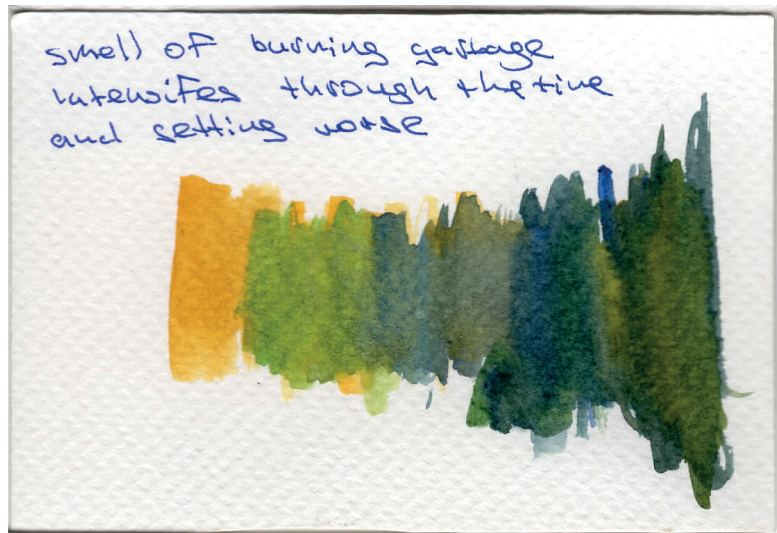 smell of burning garbage
intensifes through the time
and getting worse